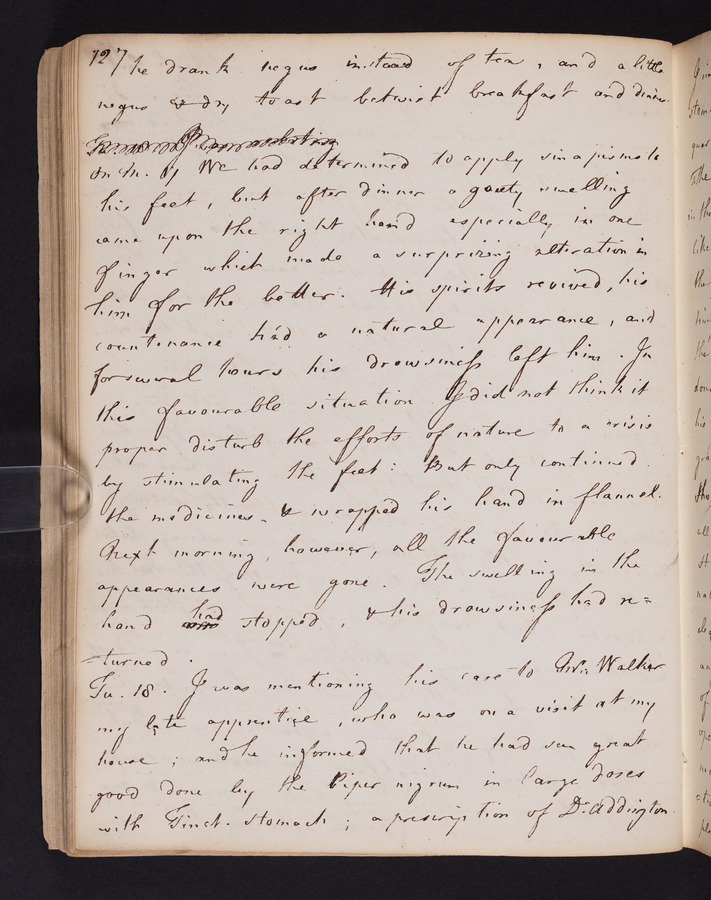 127
he drank negus instead of tea, and a little
negus & dry toast betwixt breakfast and dinner
On M. 17 We had determined to apply sinapisms to
his feet, but after dinner a gouty swelling
came upon the right hand especially in one
finger which made a surprizing alteration in
him for the better. His spirits revived, his
countinance had a natural appearance, and
for several hours his drowsiness left him. In
this favourable situation I did not think it
proper disturb the efforts of nature to a crisis
by stimulating the feet: But only continued
the medicines & wrapped his hand in flannel.
Next morning, however, all the favourable
appearances were gone. The swelling in the
hand had stopped, & his drowsiness had re=
=turned.
Tu. 18. I was mentioning his case to Wm. Walker
my late apprentice, who was on a visit at my
house; and he informed that he had seen great
good done by the Piper nigrum in large doses
with Tinct. stomach; a prescription of Dr. Addington